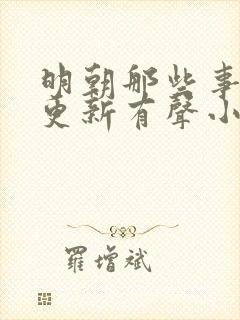 明朝那些事
更新有聲小
羅增斌